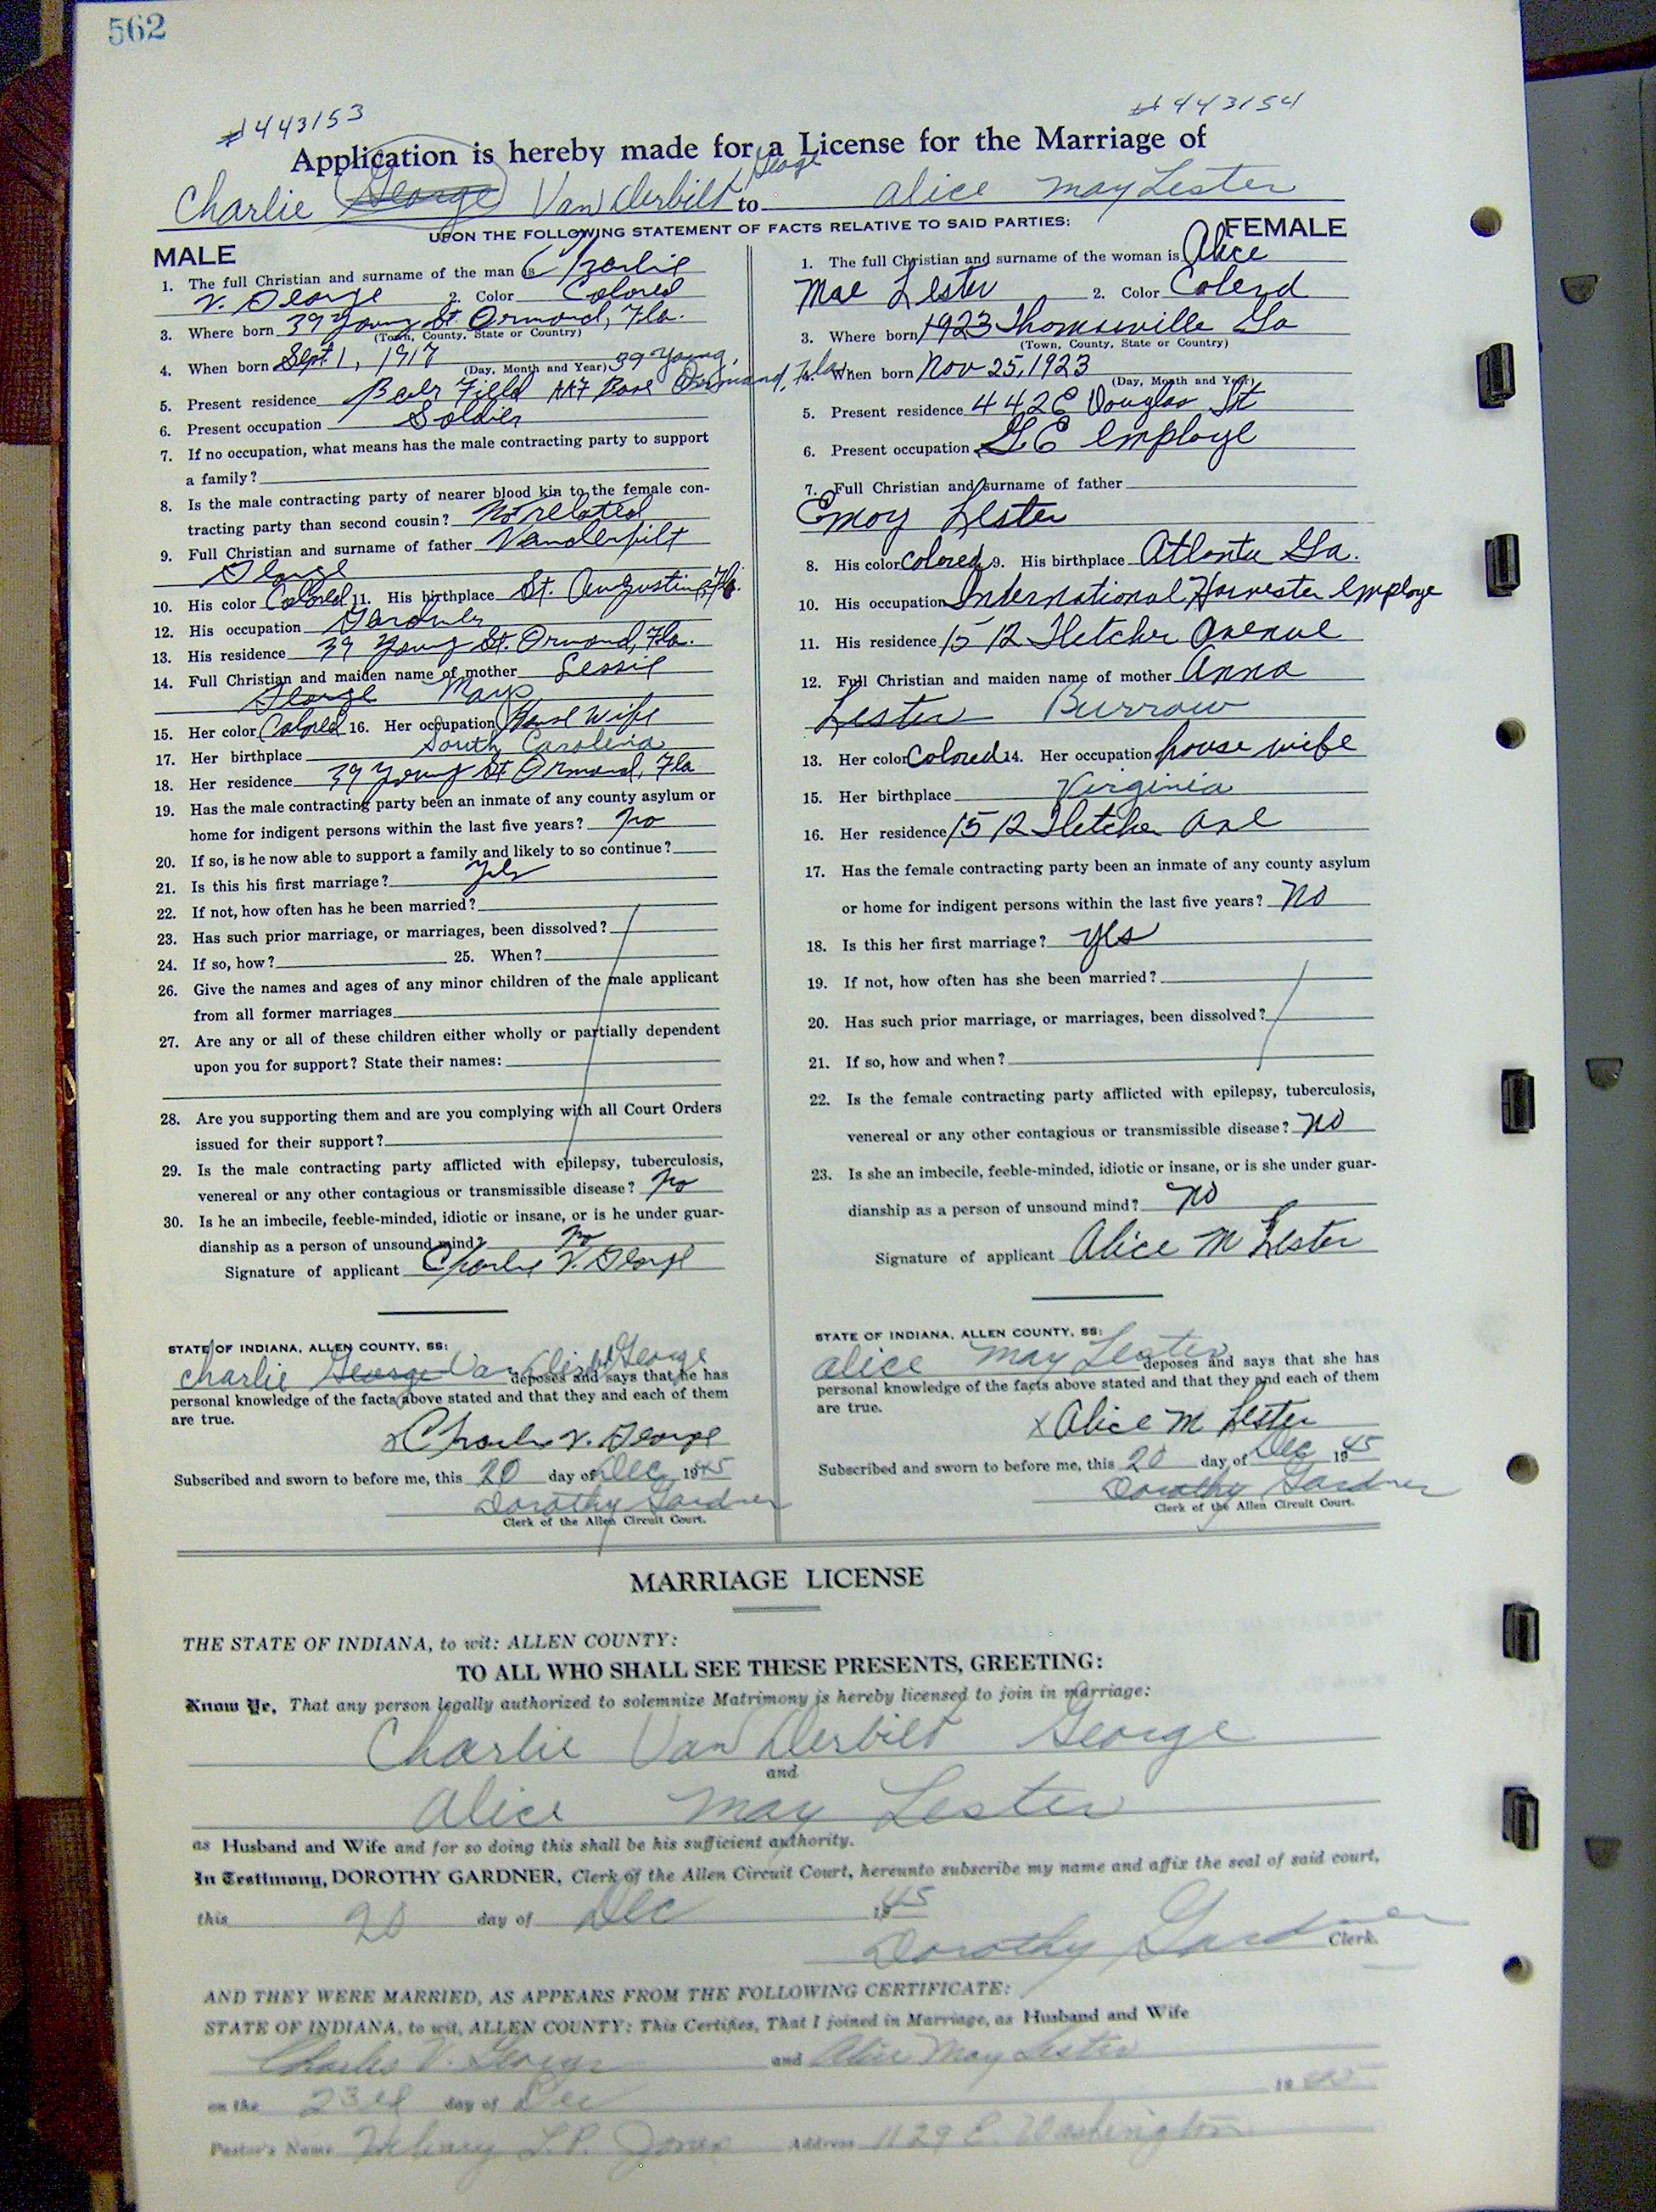 562
#443153
#443154
Application is hereby made for a License for the Marriage of
George
Charlie George VanDerbilt to Alice May Lester
UPON THE FOLLOWING STATEMENT OF FACTS RELATIVE TO SAID PARTIES:
MALE
1. The full Christian and surname of the man is Charlie
V. George 2. Color Colored
3. Where born 39 Young St. Ormond, Fla.
(Town, County, State or Country)
4. When born Sept 1, 1917 39 Young,
(Day, Month and Year)
5. Present residence Field AAF Base Ormond, Fla.
6. Present occupation Soldier
7. If no occupation, what means has the male contracting party to support
a family?
8. Is the male contracting party of nearer blood kin to the female con-
tracting party than second cousin? Not related
9. Full Christian and surname of father Vanderbilt
George
10. His color Colored 11. His birthplace St. Augustine, Fla.
12. His occupation Gardner
13. His residence 39 Young St. Ormond, Fla.
14. Full Christian and maiden name of mother Lessie
George Mays
15. Her color Colored 16. Her occupation House Wife
17. Her birthplace South Carolina
18. Her residence 39 Young St Ormond, Fla
19. Has the male contracting party been an inmate of any county asylum or
home for indigent persons within the last five years? No
20. If so, is he now able to support a family and likely to so continue?
21. Is this his first marriage? Yes
22. If not, how often has he been married?
23. Has such prior marriage, or marriages, been dissolved?
24. If so, how? 25. When?
26. Give the names and ages of any minor children of the male applicant
from all former marriages
27. Are any or all of these children either wholly or partially dependent
upon you for support? State their names:
28. Are you supporting them and are you complying with all Court Orders
issued for their support?
29. Is the male contracting party afflicted with epilepsy, tuberculosis,
venereal or any other contagious or transmissible disease? No
30. Is he an imbecile, feeble-minded, idiotic or insane, or is he under guar-
dianship as a person of unsound mind? No
Signature of applicant Charlie V. George
STATE OF INDIANA, ALLEN COUNTY, SS:
Charlie George VanDerbilt George deposes and says that he has
personal knowledge of the facts above stated and that they and each of them
are true.
x Charlie V. George
Subscribed and sworn to before me, this 20 day of Dec 1945
Dorothy Gardner
Clerk of the Allen Circuit Court.
FEMALE
1. The full Christian and surname of the woman is Alice
Mae Lester 2. Color Colerd
3. Where born 1923 Thomasville Ga
(Town, County, State or Country)
4. When born Nov 25, 1923
(Day, Month and Year)
5. Present residence 442 E Douglas St
6. Present occupation G.E employe
7. Full Christian and surname of father
Emoy Lester
8. His color colored 9. His birthplace Atlanta Ga.
10. His occupation International Harvester employe
11. His residence 1512 Fletcher Avenue
12. Full Christian and maiden name of mother Anna
Lester Burrow
13. Her color Colored 14. Her occupation house wife
15. Her birthplace Virginia
16. Her residence 1512 Fletcher Ave
17. Has the female contracting party been an inmate of any county asylum
or home for indigent persons within the last five years? No
18. Is this her first marriage? yes
19. If not, how often has she been married?
20. Has such prior marriage, or marriages, been dissolved?
21. If so, how and when?
22. Is the female contracting party afflicted with epilepsy, tuberculosis,
venereal or any other contagious or transmissible disease? no
23. Is she an imbecile, feeble-minded, idiotic or insane, or is she under guar-
dianship as a person of unsound mind? no
Signature of applicant Alice M Lester
STATE OF INDIANA, ALLEN COUNTY, SS:
Alice May Lester deposes and says that she has
personal knowledge of the facts above stated and that they and each of them
are true.
x Alice M Lester
Subscribed and sworn to before me, this 20 day of Dec 1945
Dorothy Gardner
Clerk of the Allen Circuit Court.
MARRIAGE LICENSE
THE STATE OF INDIANA, to wit: ALLEN COUNTY:
TO ALL WHO SHALL SEE THESE PRESENTS, GREETING:
Know Ye, That any person legally authorized to solemnize Matrimony is hereby licensed to join in marriage:
Charlie VanDerbilt George
and
Alice May Lester
as Husband and Wife and for so doing this shall be his sufficient authority.
In Testimony, DOROTHY GARDNER, Clerk of the Allen Circuit Court, hereunto subscribe my name and affix the seal of said court,
this 20 day of Dec 1945
Dorothy Gardner Clerk.
AND THEY WERE MARRIED, AS APPEARS FROM THE FOLLOWING CERTIFICATE:
STATE OF INDIANA, to wit, ALLEN COUNTY: This Certifies, That I joined in Marriage, as Husband and Wife
Charles V. George and Alice May Lester
on the 23rd day of Dec 1945
Pastor's Name Jones Address 1129 E. Washington